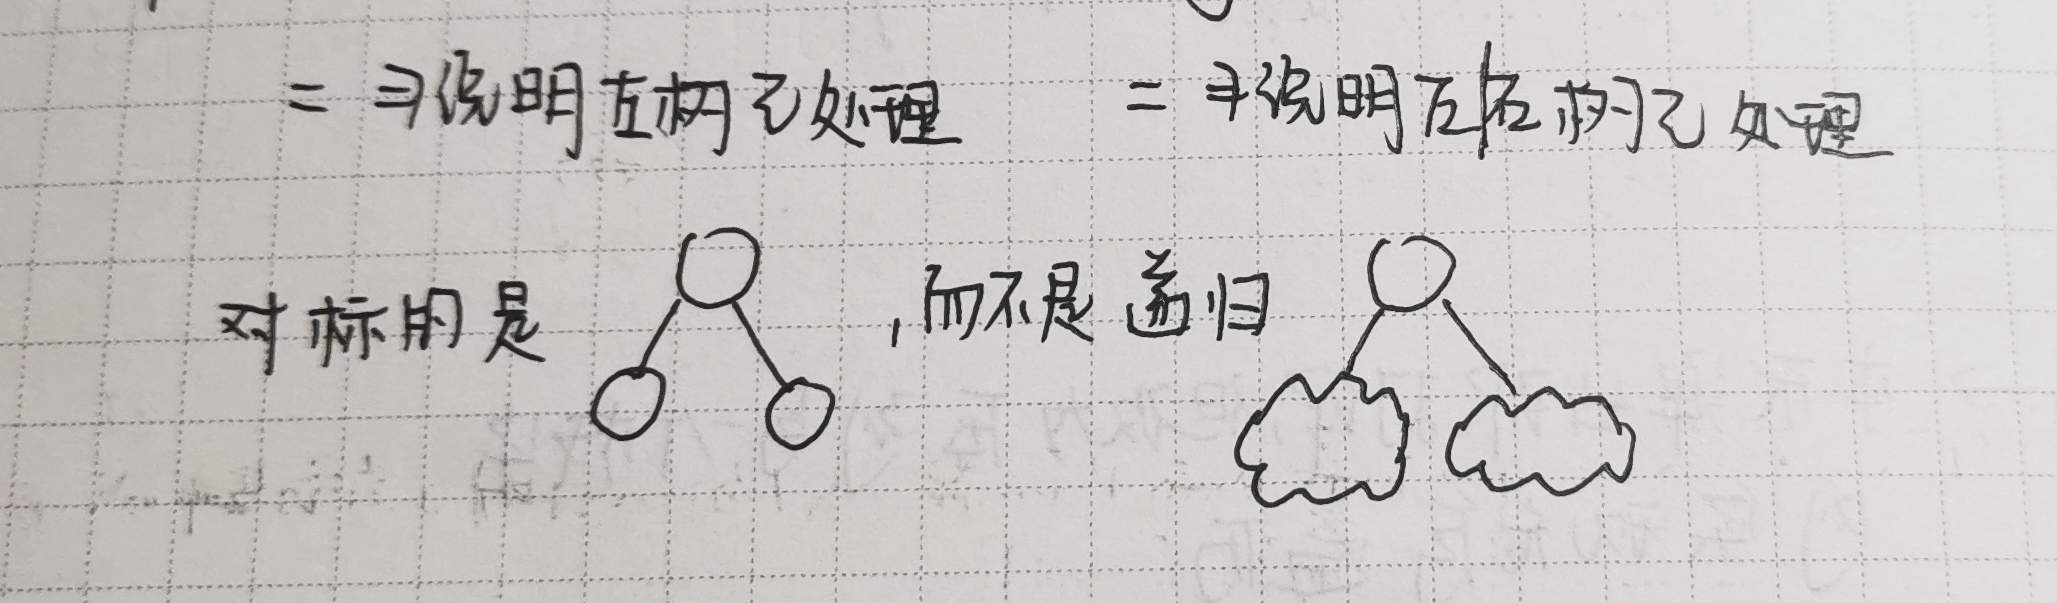 =ヨ说明左树已处理 =ヨ说明左|右树已处理
对标的是 ,而不是递归